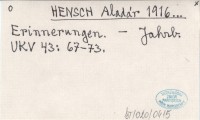 HENSCH Aladár 1916...
Erinnerungen. – Jahrb.
UKV 43: 67-73.